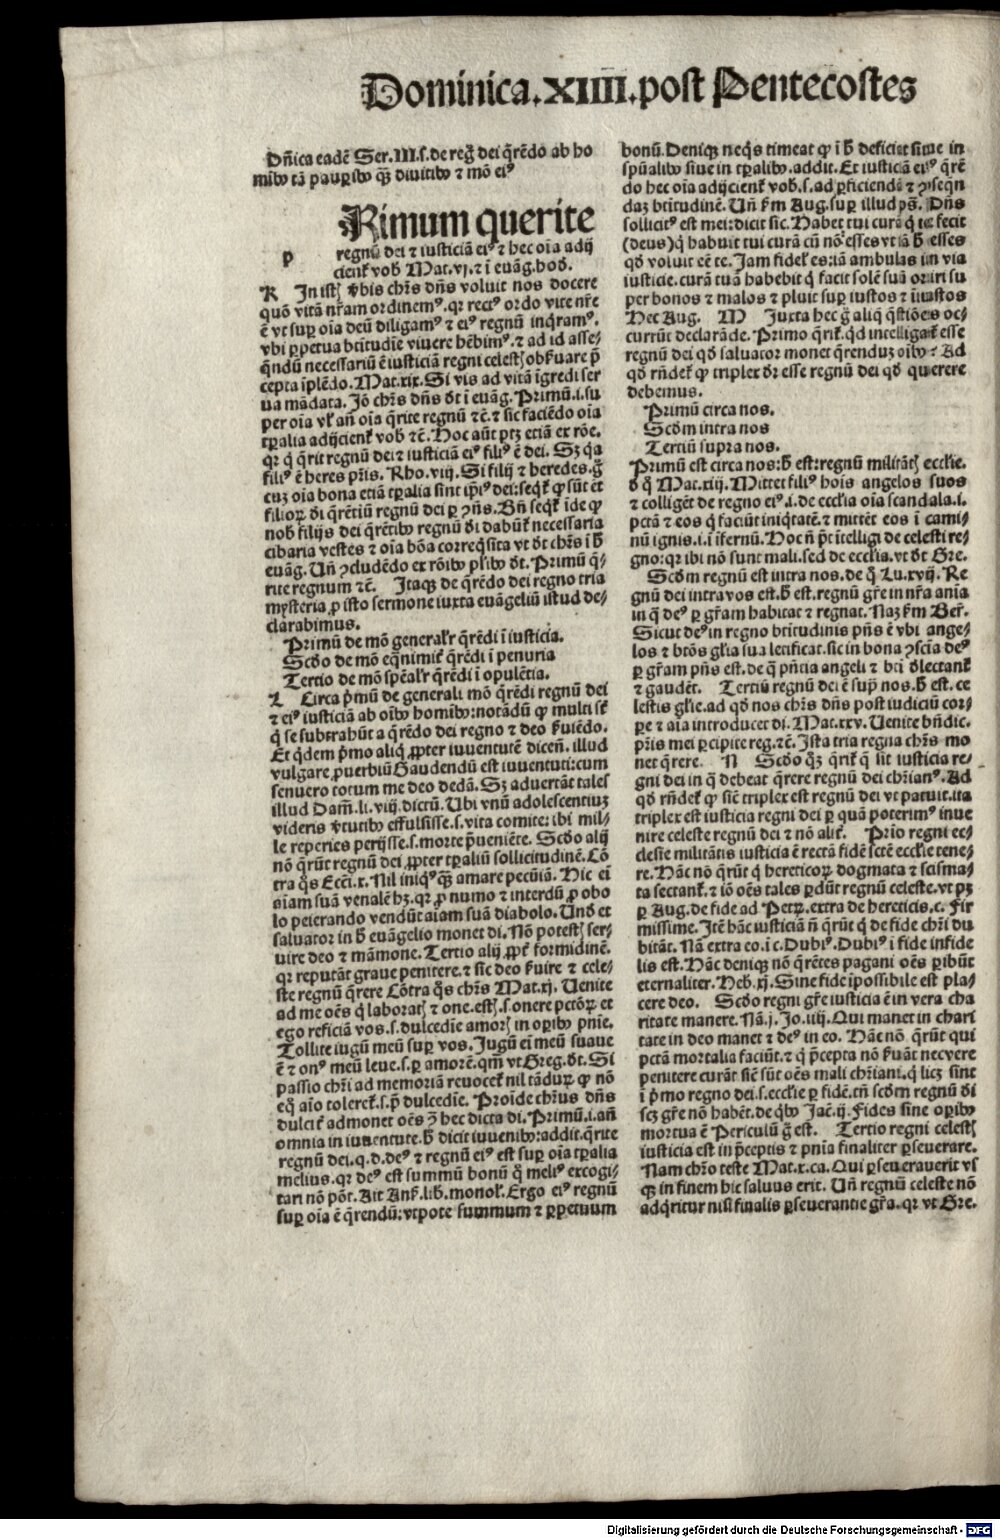 Dominica.XIIII.post Pentecostes
Dñica eadē Ser.III.s.de regō dei q̄rēdo ab ho
mībꝰ tā pauꝑibꝰ qȝ diuitibꝰ ⁊ mō eiꝰ
PRimum querite
regnū dei ⁊ iusticiā eiꝰ ⁊ hec oīa adij
cienť vob Mat.vj.⁊ ī euāg.hod.
K In istꝭ v̄bis chr̄s dn̄s voluit nos docere
quō vitā nr̄am ordinemꝰ.qr rectꝰ ordo vite nr̄e
ē vt suꝑ oīa deū diligamꝰ ⁊ eiꝰ regnū inq̄ramꝰ.
vbi ꝑpetua btitudīe viuere hēbimꝰ.⁊ ad id asse-
q̄ndū necessariū ē iusticiā regni celestꝭ obs̄uare p̄
cepta īplēdo.Mat.xix.Si vis ad vitā īgredi ser
ua mādata. Jō chr̄s dn̄s d̄t ī euāg. Primū.i.su
per oīa vľ an̄ oīa q̄rite regnū ⁊c̄.⁊ sic faciēdo oīa
tꝑalia adijcienť vob ⁊c̄. Hoc aūt ptȝ etiā ex rōe.
qr q̄ q̄rit regnū dei ⁊ iusticiā eiꝰ filiꝰ ē dei. Sȝ q̄a
filiꝰ ē heres pr̄is. Rho.viij. Si filij ⁊ heredes.g̊
cuȝ oīa bona etiā tꝑalia sint ip̄iꝰ dei:seqť ꝙ sūt et
filioꝝ di q̄rētiū regnū dei ꝑ ꝯn̄s. Bn̄ seqť īde ꝙ
nob filijs dei q̄rētibꝰ regnū di dabūť necessaria
cibaria vestes ⁊ oīa bōa correq̄sita vt d̄t chr̄s ī h̄
euāg. Un̄ ꝯcludēdo ex rōibꝰ pľibꝰ d̄t. Primū q̄-
rite regnum ⁊c̄. Itaqȝ de q̄rēdo dei regno tria
mysteria ꝑ isto sermone iuxta euāgeliū istud de-
clarabimus.
Primū de mō generaľr q̄rēdi ī iusticia.
Scd̄o de mō eq̄nimiť q̄rēdi ī penuria
Tertio de mō spēaľr q̄rēdi ī opulētia.
L Circa p̄mū de generali mō q̄rēdi regnū dei
⁊ eiꝰ iusticiā ab oībꝰ homībꝰ:notādū ꝙ multi sť
q̄ se subtrahūt a q̄rēdo dei regno ⁊ deo s̄uiēdo.
Et q̄dem p̄mo aliq̄ ꝓpter iuuentutē dicen̄. illud
vulgare ꝓuerbiū Gaudendū est iuuentuti:cum
senuero totum me deo dedā. Sȝ aduertāt tales
illud Dam̄.li.viij.dictū. Ubi vnū adolescentiuȝ
videris v̄tutibꝰ effulsisse.s.vita comite:ibi mil-
le reperies perijsse.s.morte p̄ueniēte. Scd̄o alij
nō q̄rūt regnū dei ꝓpter tꝑaliū sollicitudinē. Cō
tra q̄s Ecc̄i.x. Nil iniqꝰ qȝ amare pecūiā. Hic ei
aīam suā venalē hȝ.qr ꝓ numo ⁊ interdū ꝓ obo
lo peierando vendūt aīam suā diabolo. Und̄ et
saluator in h̄ euāgelio monet di. Nō potestꝭ ser-
uire deo ⁊ māmone. Tertio alij ꝓpť formidinē.
qr reputāt graue penitere.⁊ sic deo s̄uire ⁊ cele-
ste regnū q̄rere Cōtra q̄s chr̄s Mat.xj. Uenite
ad me oēs q̄ laboratꝭ ⁊ one.estꝭ.s.onere pctōꝝ et
ego reficiā vos.s.dulcedīe amorꝭ in oꝑibꝰ pn̄ie.
Tollite iugū meū suꝑ vos. Jugū ei meū suaue
ē ⁊ onꝰ meū leue.s.ꝑ amorē.qm̄ vt Greg.d̄t. Si
passio chr̄i ad memoriā reuoceť nil tā durū ꝙ nō
eq̄ aīo tolereť.s.p̄ dulcedīe. Proīde chr̄us dn̄s
dulciť admonet oēs ꝯ̄ hec dicta di. Primū.i.an̄
omnia in iuuentute.h̄ dicit iuuenibꝰ:addit.q̄rite
regnū dei.q.d.deꝰ ⁊ regnū eiꝰ est suꝑ oīa tꝑalia
melius.qr deꝰ est summū bonū q̄ meliꝰ excogi-
tari nō pōt. Ait Ans̄.lib.monol̄. Ergo eiꝰ regnū
suꝑ oīa ē q̄rendū:vtpote summum ⁊ ꝑpetuum
bonū. Deniqȝ neq̄s timeat ꝙ ī h̄ deficiet siue in
spūalibꝰ siue in tꝑalibꝰ.addit. Et iusticiā eiꝰ q̄rē
do hec oīa adijcienť vob.s.ad ꝑficiendā ⁊ ꝯseqn
daȝ btitudinē. Un̄ s̄m Aug.suꝑ illud ps̄. Dn̄s
sollicitꝰ est mei:dicit sic. Habet tui curā q̄ te fecit
(deus)q̄ habuit tui curā cū nō esses vt iā h̄ esses
qd̄ voluit eē te. Jam fidel̄ es:iā ambulas iin via
iusticie.curā tuā habebit q̄ facit solē suā oriri su
per bonos ⁊ malos ⁊ pluit suꝑ iustos ⁊ iniustos
Hec Aug. M Juxta hec g̊ aliq̄ q̄stiōes oc-
currūt declarāde. Primo q̄riť.qd intelligať esse
regnū dei qd̄ saluator monet q̄renduȝ oībꝰ? Ad
qd̄ rn̄deť ꝙ triplex d̄r esse regnū dei qd̄ querere
debemus.
Primū circa nos.
Scd̄m intra nos
Tertiū supra nos.
Primū est circa nos:h̄ est:regnū militātꝭ eccľie.
d̄ q̄ Mat.xiij. Mittet filiꝰ hoīs angelos suos
⁊ colligēt de regno eiꝰ.i.de ecclīa oīa scandala.i.
pctā ⁊ eos q̄ faciūt iniq̄tatē.⁊ mittēt eos ī cami-
nū ignis.i.ī īfernū. Hoc n̄ p̄t ītelligi de celesti re-
gno:qr ibi nō sunt mali.sed de eccľis.vt d̄t Gre.
Scd̄m regnū est intra nos.de q̄ Lu.xvij. Re
gnū dei intra vos est.h̄ est.regnū gr̄e in nr̄a aīa
in q̄ deꝰ ꝑ gr̄am habitat ⁊ regnat. Naȝ s̄m Ber̄.
Sicut deꝰ in regno btitudinis pn̄s ē vbi ange-
los ⁊ btōs gľia sua letificat.sic in bona ꝯscīa deꝰ
ꝑ gr̄am pn̄s est.de q̄ pn̄tia angeli ⁊ bti d̄lectanť
⁊ gaudēt. Tertiū regnū dei ē suꝑ nos.h̄ est.ce
lestis gľie.ad qd̄ nos chr̄s dn̄s post iudiciū cor-
ꝑe ⁊ aīa introducet di. Mat.xxv. Uenite bn̄dic.
pr̄is mei ꝑcipite reg.⁊c̄. Ista tria regna chr̄s mo
net q̄rere. N Scd̄o q̄ȝ q̄riť q̄ sit iusticia re-
gni dei in q̄ debeat q̄rere regnū dei chr̄ianꝰ. Ad
qd̄ rn̄deť ꝙ sic̄ triplex est regnū dei vt patuit.ita
triplex est iusticia regni dei ꝑ quā poterimꝰ inue
nire celeste regnū dei ⁊ nō aliť. Prīo regni ec-
clesie militātis iusticia ē rectā fidē sctē eccľie tene-
re. Hāc nō q̄rūt q̄ hereticoꝝ dogmata ⁊ scisma-
ta sectanť.⁊ iō oēs tales ꝑdūt regnū celeste.vt pȝ
ꝑ Aug.de fide ad Petꝝ.extra de hereticis.c. Fir
missime. Itē hāc iusticiā n̄ q̄rūt q̄ de fide chr̄i du
bitāt. Nā extra eo.ī c. Dubiꝰ. Dubiꝰ ī fide infide
lis est. Hāc deniqȝ nō q̄rētes pagani oēs ꝑibūt
eternaliter. Heb.xj. Sine fide īpossibile est pla-
cere deo. Scd̄o regni gr̄e iusticia ē in vera cha
ritate manere. Nā.j. Jo.iiij. Qui manet in chari
tate in deo manet ⁊ deꝰ in eo. Hāc nō q̄rūt qui
pctā mortalia faciūt.⁊ q̄ p̄cepta nō s̄uāt nec vere
penitere curāt sic̄ sūt oēs mali chr̄iani.q̄ licȝ sint
ī p̄mo regno dei.s.eccľie ꝑ fidē.tn̄ scd̄m regnū di
scȝ gr̄e nō habēt.de qbꝰ Jac̄.ij. Fides sine oꝑibꝰ
mortua ē Periculū g̊ est. Tertio regni celestꝭ
iusticia est in p̄ceptis ⁊ pn̄ia finaliter ꝑseuerare.
Nam chr̄o teste Mat.x.ca. Qui ꝑseuerauerit vs
qȝ in finem hic saluus erit. Un̄ regnū celeste nō
adq̄ritur nisi finalis ꝑseuerantie gr̄a.qr vt Gre.
Digitalisierung gefördert durch die Deutsche Forschungsgemeinschaft - DFG